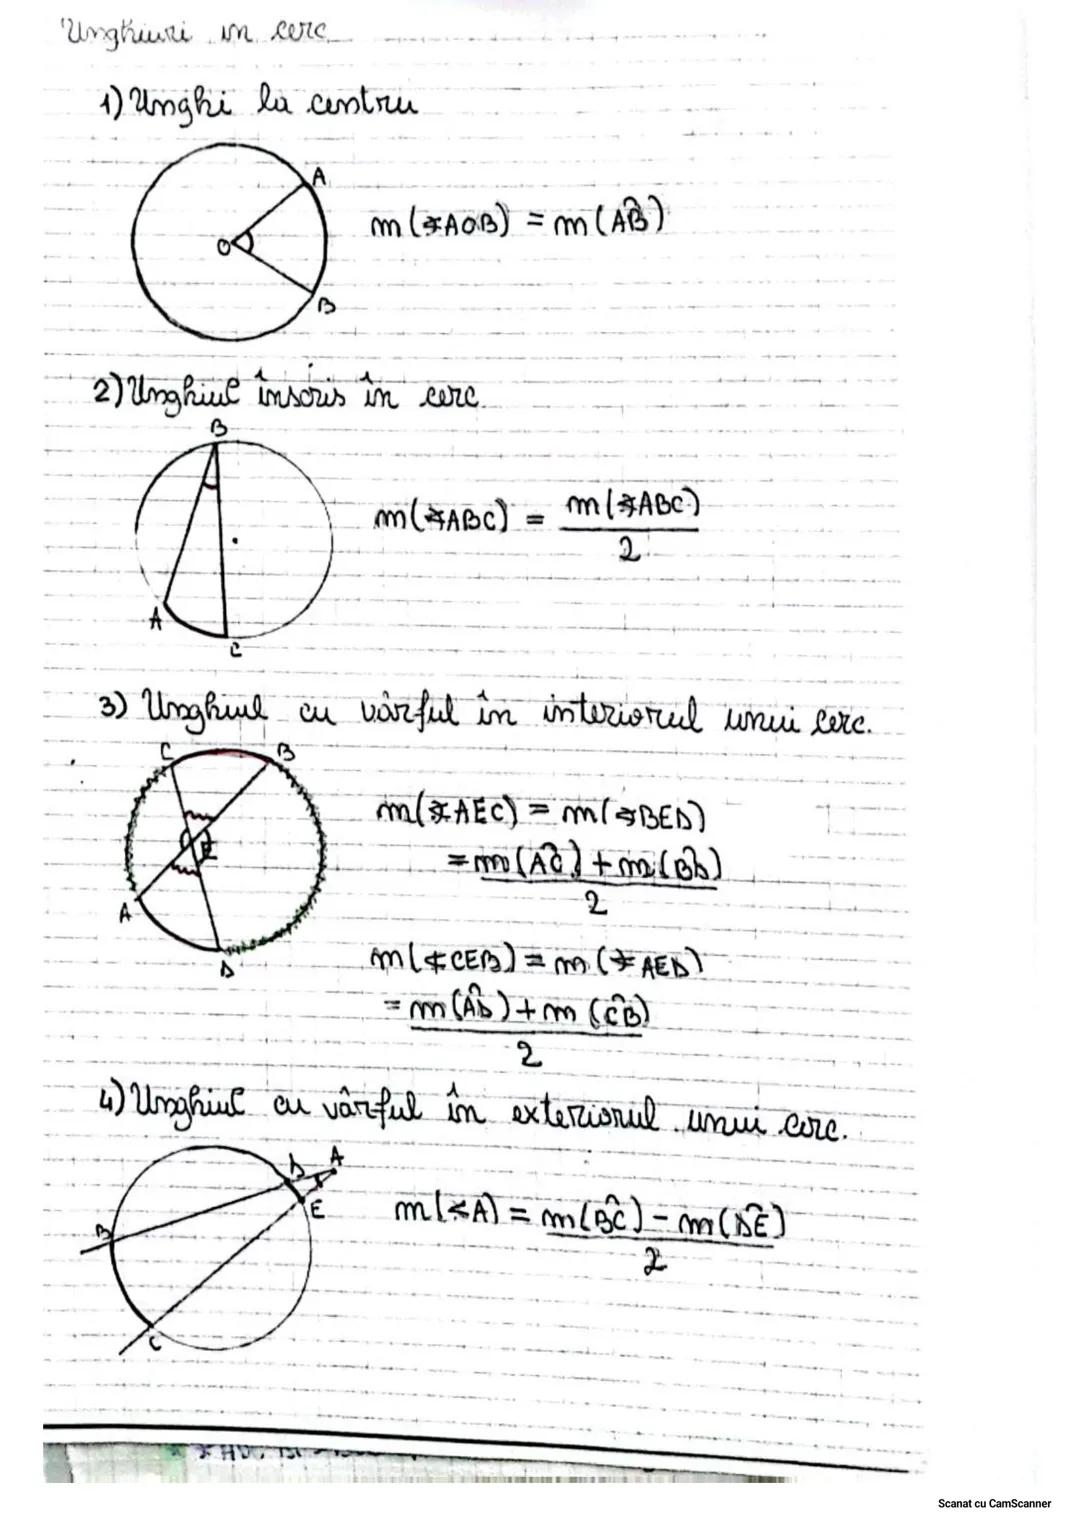 Unghiuri in cerc
1) Unghi la centru
A
O
B
m(∢AOB) = m(AB̂)
2) Unghiul înscris în cerc
B
A
C
m(∢ABC) = m(∢ABC)
2
3) Unghiul cu vârful în interiorul unui cerc.
C
B
E
A
D
m(∢AEC) = m(∢BED)
= m(AĈ) + m(BD̂)
2
m(∢CEB) = m(∢AED)
= m(AD̂) + m(CB̂)
2
4) Unghiul cu vârful în exteriorul unui cerc.
D
A
E
B
C
m(∢A) = m(BĈ) - m(DÊ)
2
Scanat cu CamScanner